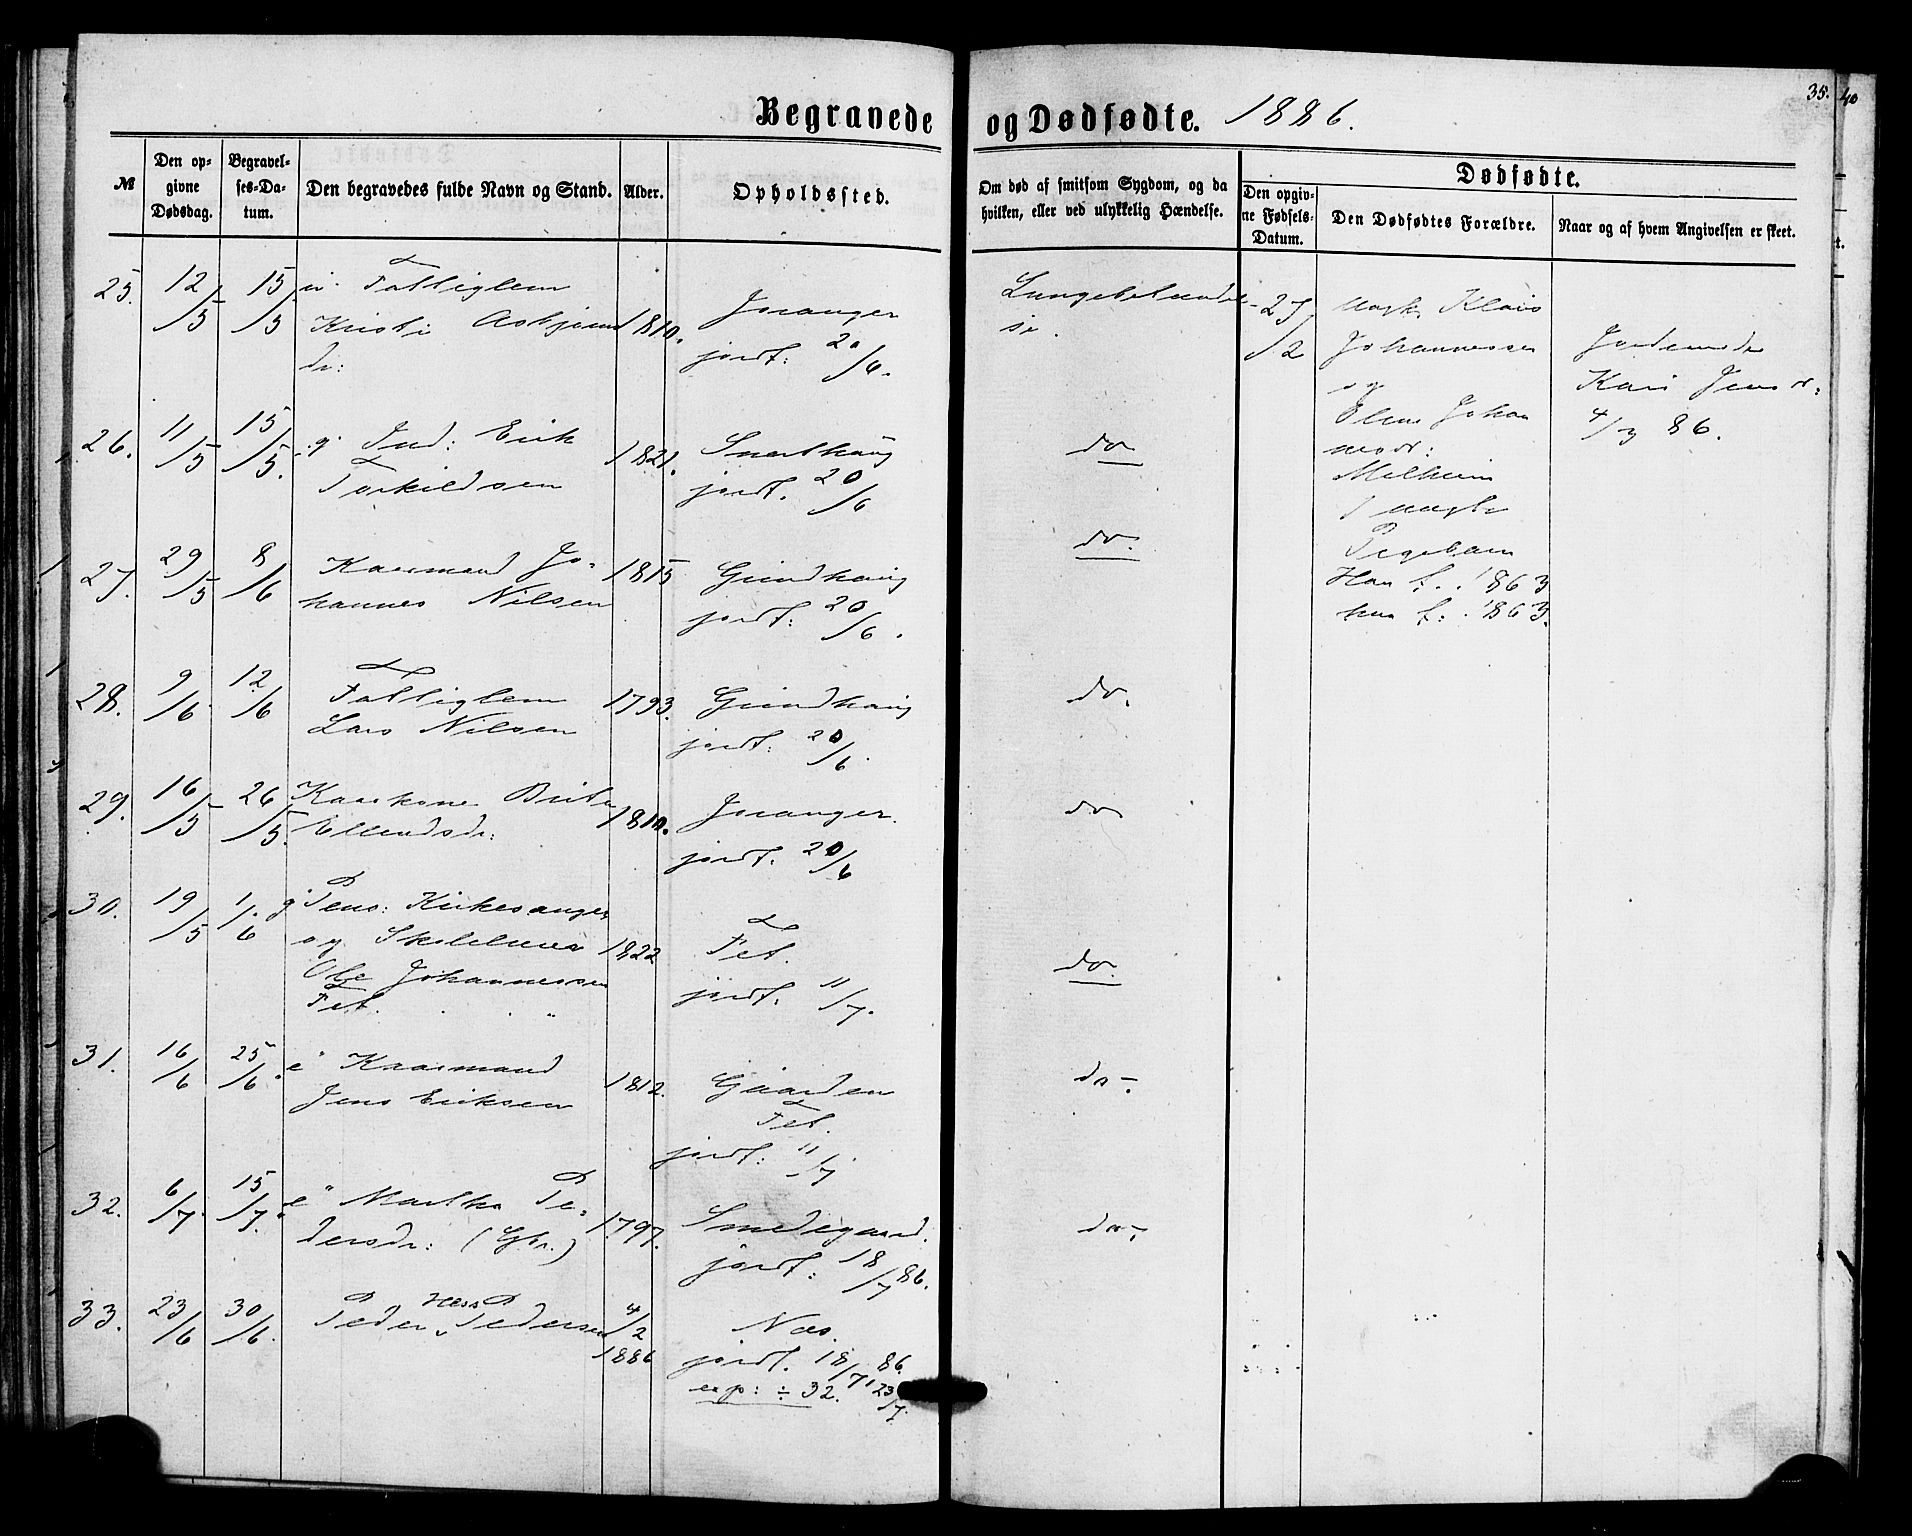 Begravede og Dødfødte. 1886.
35.
40
№
Den opgivne Dødsdag.
Begravelses-Datum.
Den begravedes fulde Navn og Stand.
Alder.
Opholdssted.
Om død af smitsom Sygdom, og da hvilken, eller ved ulykkelig Hændelse.
Dødfødte.
Den opgivne Fødsels-Datum.
Den Dødfødtes Forældre.
Naar og af hvem Angivelsen er skeet.
25. 12/5 15/5 Fattiglem
Kristi Asbjørns 1810. Joranger
dr: jordf: 20/6.
26. 11/5 15/5. g. Ind: Erik 1821. Snarthaug
Torkildsen jordf. 20/6
do
27. 29/5 8/6 Kaarmand Jo- 1815
hannes Nilsen jordf: 20/6.
do.
28. 9/6 12/6 Fattiglem 1793.
Lars Nilsen jordf: 20/6.
do.
29. 16/5 26/5. Kaarkone Brita 1810. Joranger.
Ellendsdr: jordf. 20/6
do
30. 19/5 1/6 g. Pens: Kirkesanger
og Skolelærer 1822 Fet.
Ole Johannessen jordf. 11/7.
Fet.
do.
31. 16/6 25/6. e" Kaarmand 1812. Gaarden
Jens Eriksen Fet.
jordf: 11/7
do.
32. 6/7. 15/7. e" Martha Pe- 1797. Smedegaard.
dersdr: (Gbr.) jordf: 18/7 86.
do.
33. 23/6 30/6. Peder Hess Pedersen 4/2 1886 Næs.
jordf. 18/7 86.
exp: ÷ 32. 23/7.
27/2
Klais
Johannessen
og
Johan
nesdr:
Melheim
Pigebarn
Han f. 1863
hun f: 1863.
Jordemoder
Kari Jensdr:
4/3 86.